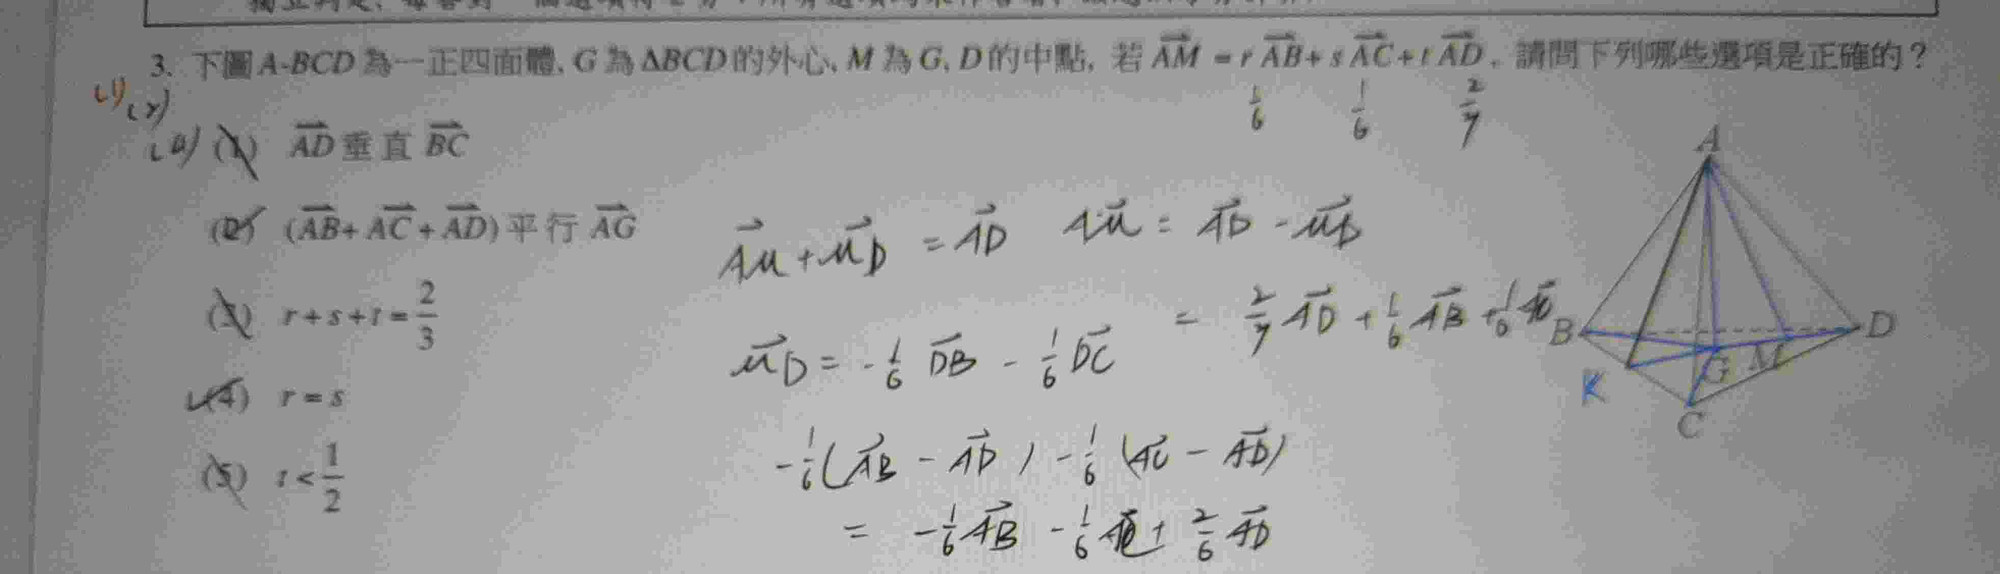 3. 下圖A-BCD為一正四面體, G為ΔBCD的外心, M為G, D的中點, 若 AM = r AB + s AC + t AD, 請問下列哪些選項是正確的？
1/6 1/6 2/7
(1) AD 垂直 BC
(2) (AB + AC + AD) 平行 AG
(3) r + s + t = 2/3
(4) r = s
(5) t < 1/2
AM + MD = AD
AM = AD - MD
= 2/7 AD + 1/6 AB + 1/6 AC
MD = -1/6 DB - 1/6 DC
-1/6 (AB - AD) - 1/6 (AC - AD)
= -1/6 AB - 1/6 AC + 2/6 AD
A
B
D
G
M
K
C